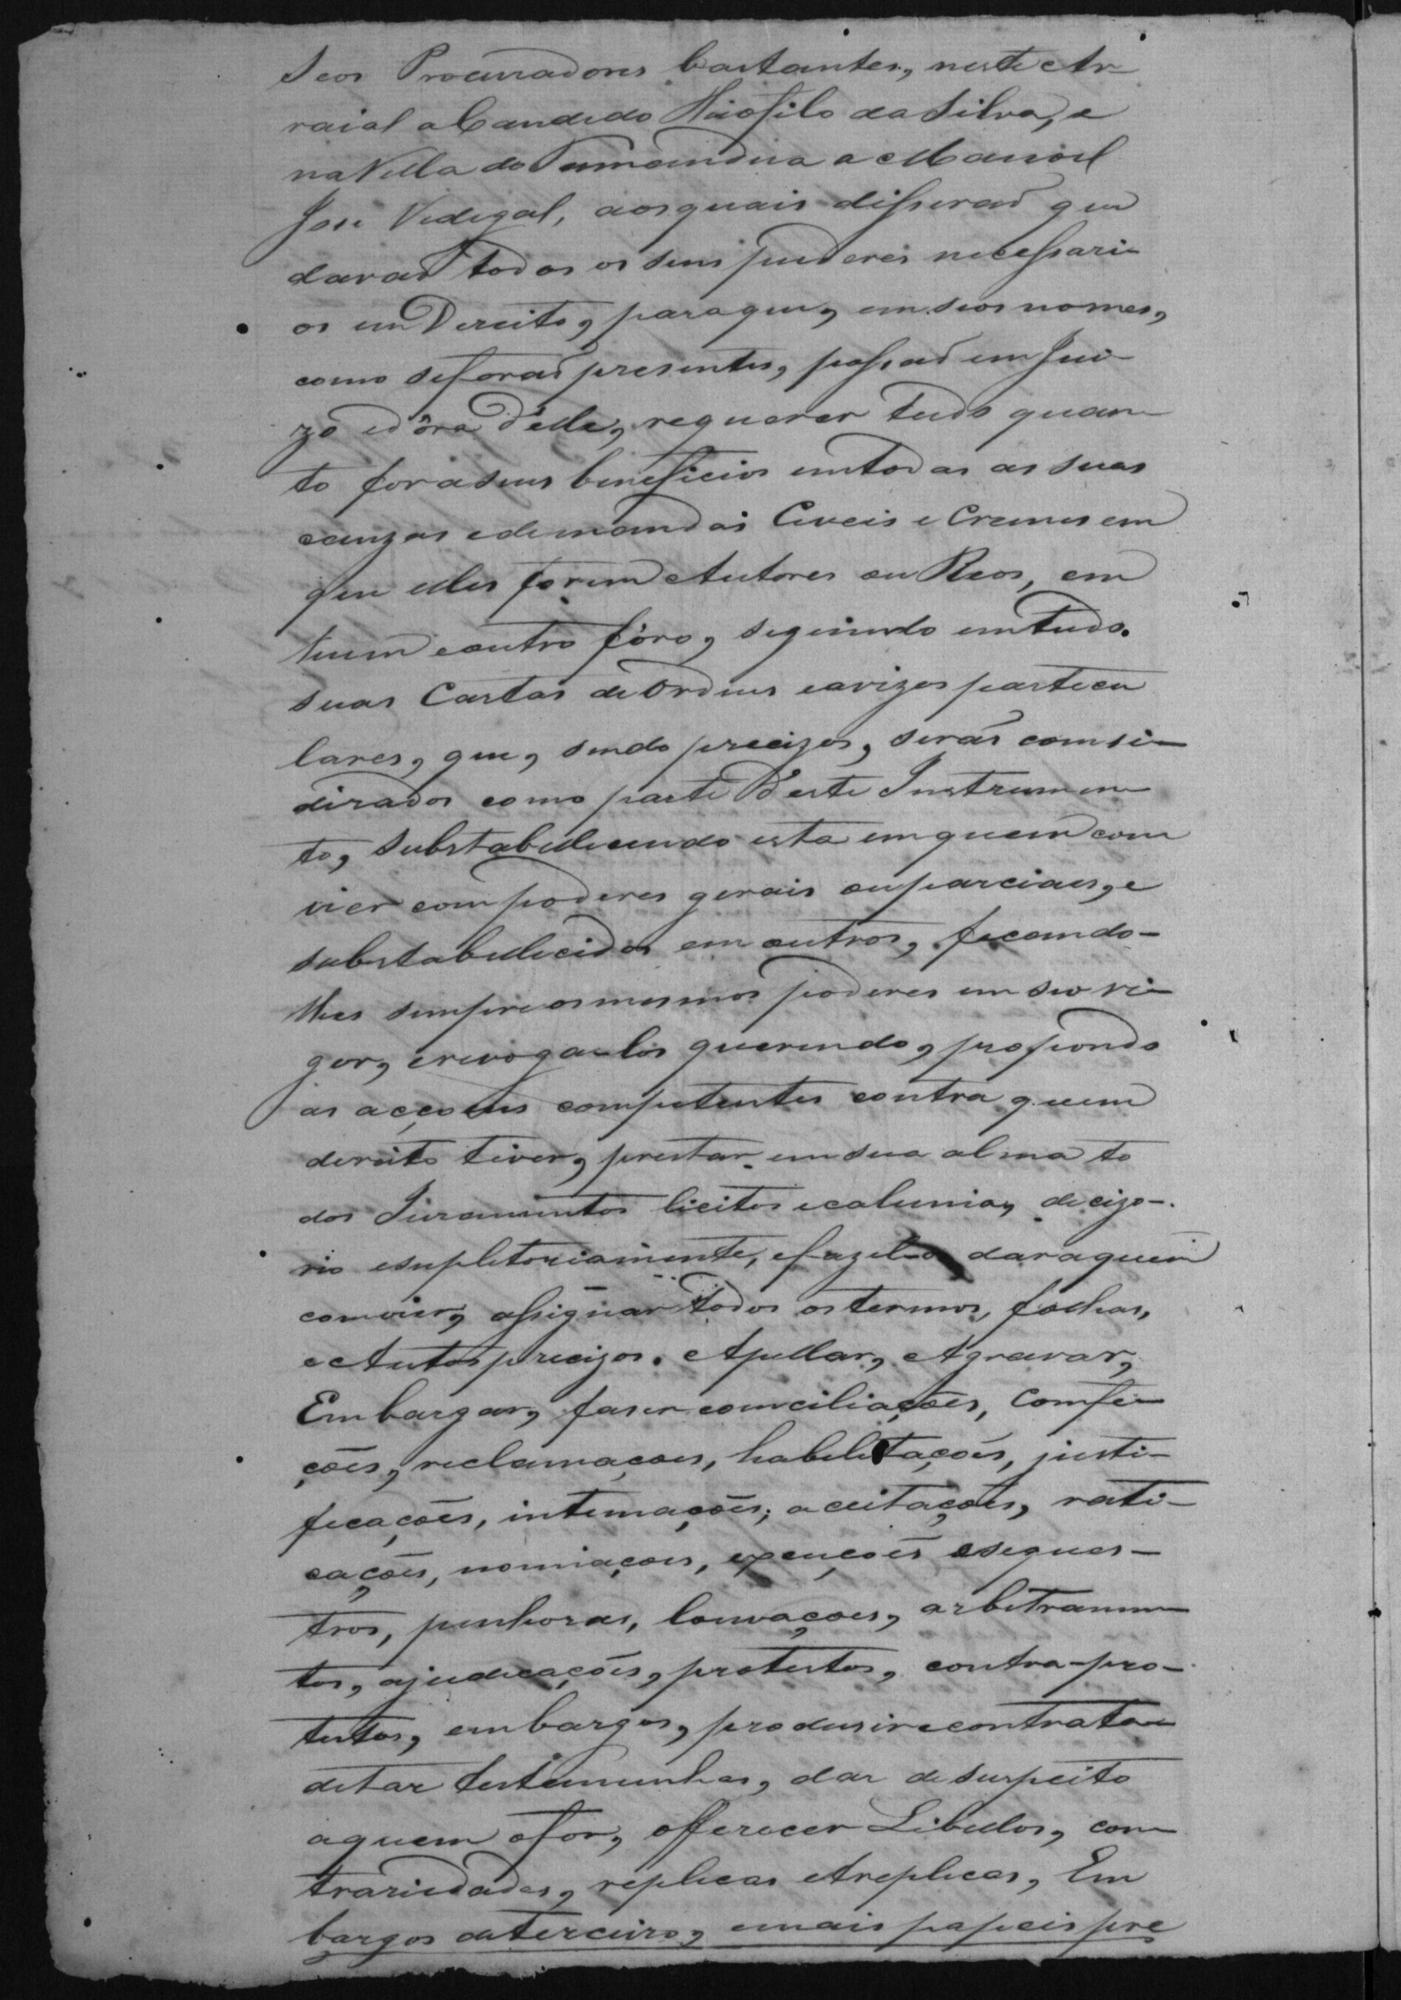 Seos Procuradores bastantes, neste Ar-
raial a Candido Theofilo da Silva, e
na Villa do Tamandua a Manoel
Jose Vidigal, aos quais disserão que
davão todos os seus puderes necessari-
os em Dereito, para que, em seos nomes,
como se forão presentes, possão em Jui-
zo e d'óra d'elle, requerer tudo quan-
to for a seus beneficios em todas as suas
cauzas e demandas Civeis e Crimes em
que elles forem Autores ou Reos, em
hum e outro fôro, seguindo em tudo.
suas Cartas de Ordens e avizos particu
lares, que, sendo precizos, serão comsi-
dirados como parte d'este Instrumen-
to, substabelecendo esta em quem com
vier com poderes gerais ou parciaes, e
substabellecidos em outros, ficando-
lhes sempre os mesmos poderes em seo vi-
gor, e revoga-los querendo, propondo
as acçoens competentes contra quem
dereito tiver, prestar em sua alma to
dos Juramentos licitos e calunia, decizo-
rio e supletoriamente, e fazel-o dar a quem
comvier, assignar todos os termos, folhas,
e Autos precizos. Apellar, Agravar,
Embargar, faser comciliações, Comfi-
ções, reclamaçoes, habelitações, justi-
ficações, intimações, aceitações, rati-
cações, nomiações, exenções e seques-
tros, penhoras, louvações, arbitramen-
tos, ajudicações, protestos, contra-pro-
testos, embargos, produsir e contrata-
ditar testemunhas, dar de suspeito
a quem o for, offerecer Libellos, com
trariedades, replicas e treplicas, Em
bargos de terceiro, e mais papeis pre